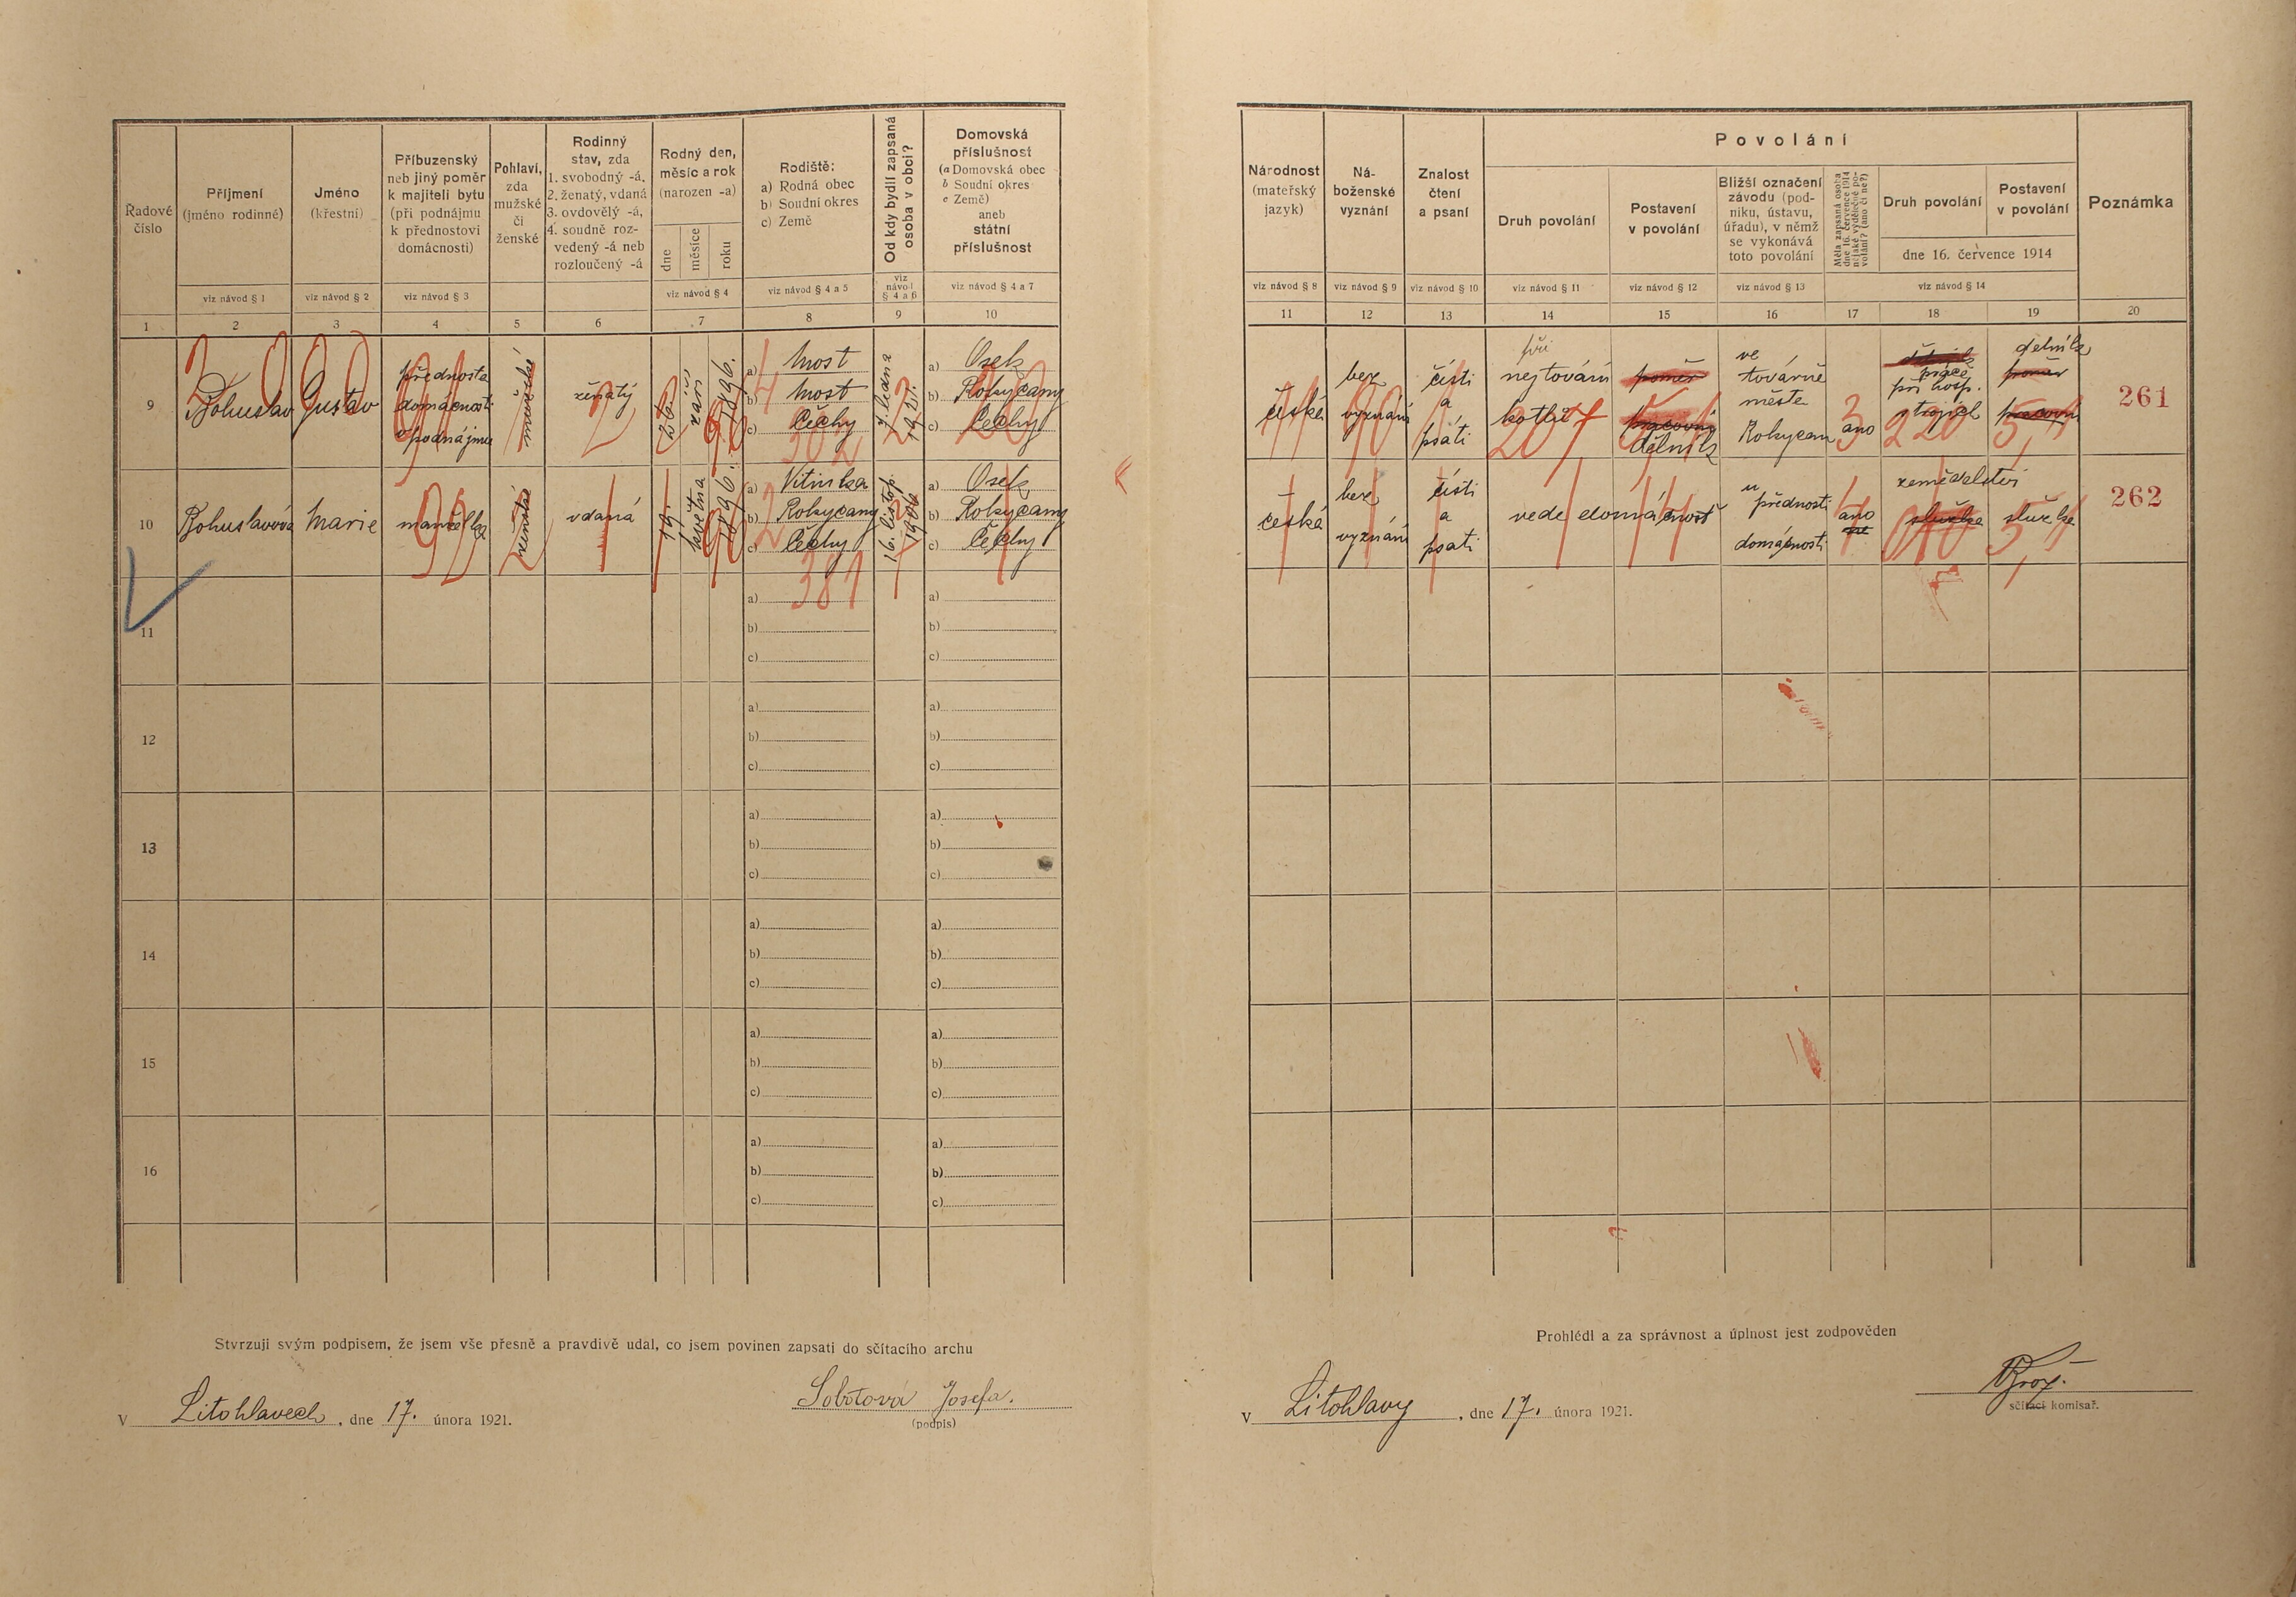 Řadové
číslo
Příjmení
(jméno rodinné)
viz návod § 1
Jméno
(křestní)
viz návod § 2
Příbuzenský
neb jiný poměr
k majiteli bytu
(při podnájmu
k přednostovi
domácnosti)
viz návod § 3
Pohlaví,
zda
mužské
či
ženské
Rodinný
stav, zda
1. svobodný -á,
2. ženatý, vdaná
3. ovdovělý -á,
4. soudně roz-
vedený -á neb
rozloučený -á
Rodný den,
měsíc a rok
(narozen -a)
dne
měsíce
roku
viz návod § 4
Rodiště:
a) Rodná obec
b) Soudní okres
c) Země
viz návod § 4 a 5
Od kdy bydlí zapsaná
osoba v obci?
viz
návod
§ 4 a 6
Domovská
příslušnost
(a Domovská obec
b Soudní okres
c Země)
aneb
státní
příslušnost
viz návod § 4 a 7
1 2 3 4 5 6 7 8 9 10
9
Bohuslav
Gustav
přednosta
domácnosti
v podnájmu
mužské
ženatý
26.
září
1896.
a) Most
b) Most
c) Čechy
302
7. ledna
1921.
a) Osek
b) Rokycany
c) Čechy
10
Bohuslavová
Marie
manželka
ženské
vdaná
19.
května
1896.
a) Vitinka
b) Rokycany
c) Čechy
381
16. listop.
1906
a) Osek
b) Rokycany
c) Čechy
11
a)
b)
c)
a)
b)
c)
12
a)
b)
c)
a)
b)
c)
13
a)
b)
c)
a)
b)
c)
14
a)
b)
c)
a)
b)
c)
15
a)
b)
c)
a)
b)
c)
16
a)
b)
c)
a)
b)
c)
Stvrzuji svým podpisem, že jsem vše přesně a pravdivě udal, co jsem povinen zapsati do sčítacího archu
V Litohlavech, dne 17. února 1921.
Sobotová Josefa.
(podpis)
Národnost
(mateřský
jazyk)
viz návod § 8
Ná-
boženské
vyznání
viz návod § 9
Znalost
čtení
a psaní
viz návod § 10
Povolání
Druh povolání
viz návod § 11
Postavení
v povolání
viz návod § 12
Bližší označení
závodu (pod-
niku, ústavu,
úřadu), v němž
se vykonává
toto povolání
viz návod § 13
Měla zapsaná osoba
dne 16. července 1914
nějaké výdělečné po-
volání? (ano či ne?)
Druh povolání
Postavení
v povolání
dne 16. července 1914
viz návod § 14
Poznámka
11 12 13 14 15 16 17 18 19 20
česká
bez
vyznání
čísti
a
psáti
při
kotlů
207
poměr
dělník
ve
továrně
města
Rokycan
ano
práce
při hosp.
strojích
220
dělník
poměr
261
česká
bez
vyznání
čísti
a
psati
vede domácnost
u
přednosti
domácnosti
ano
ne
zemědělství
služba
služka
262
Prohlédl a za správnost a úplnost jest zodpověden
V Litohlavy, dne 17. února 1921.
sčítací komisař.